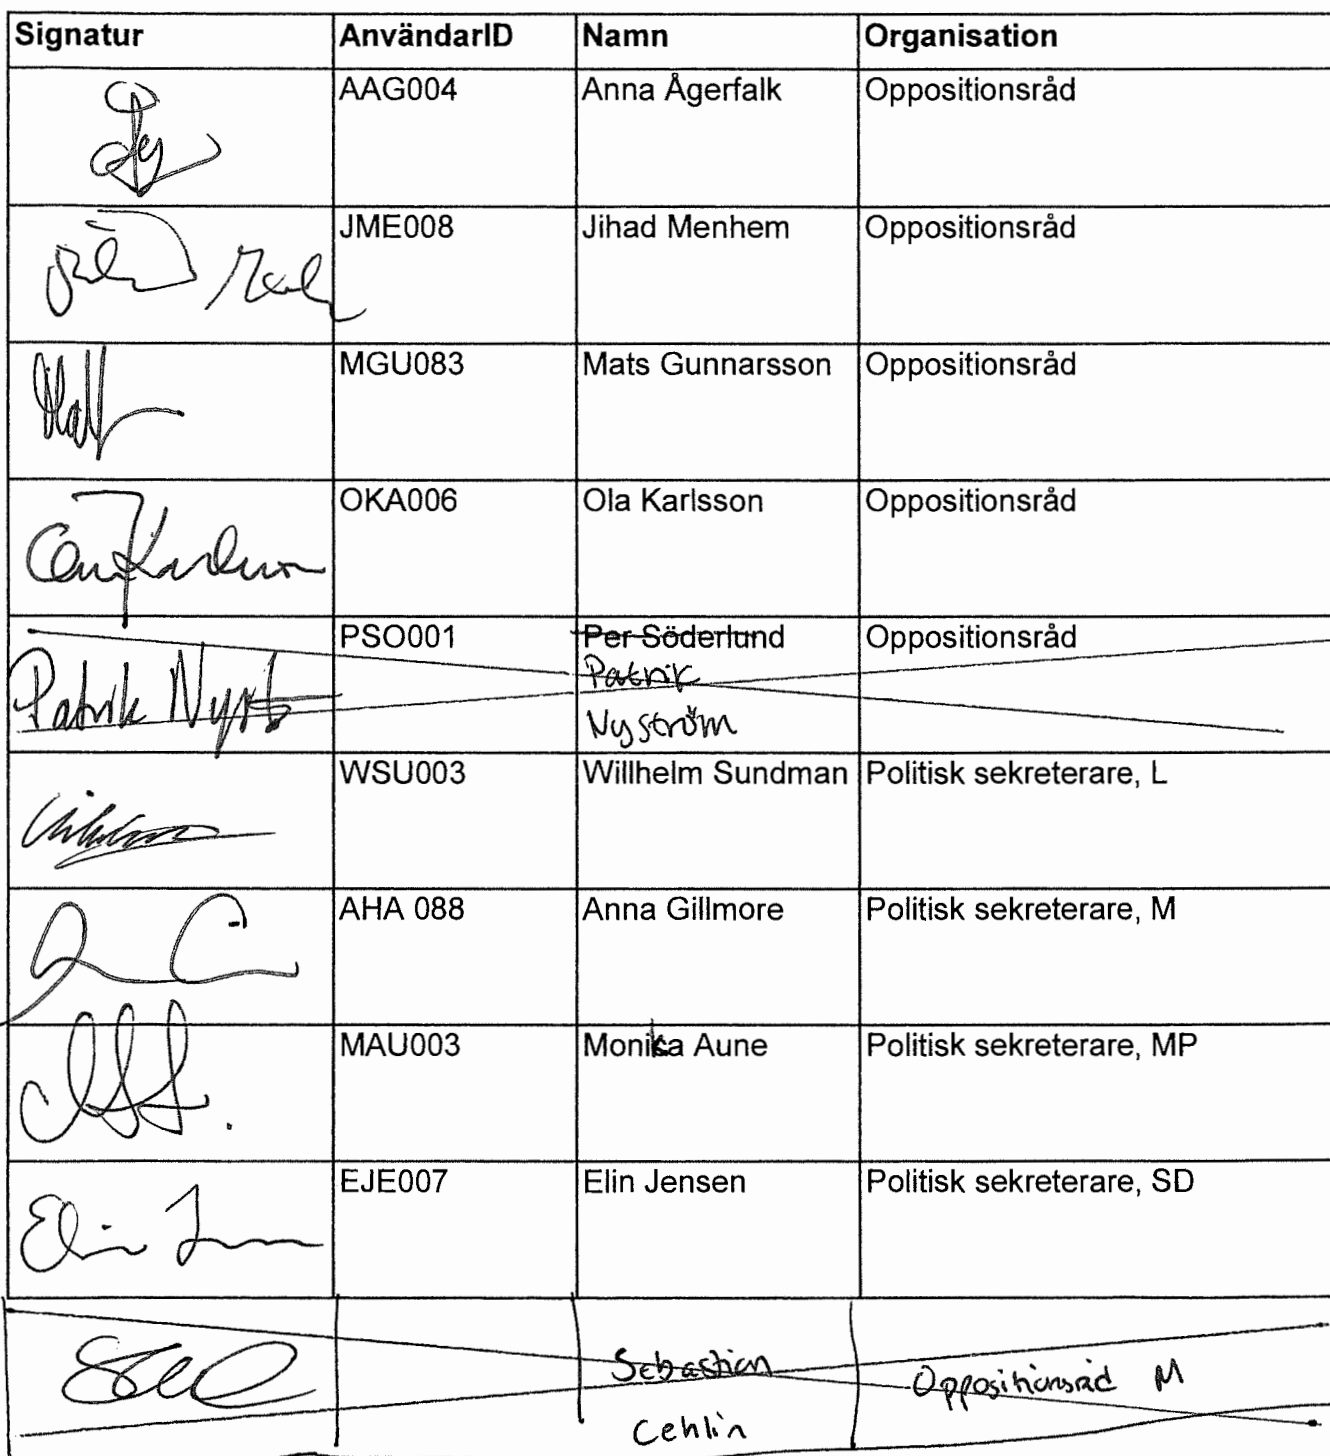 Signatur AnvändarID Namn Organisation
AAG004 Anna Ågerfalk Oppositionsråd
JME008 Jihad Menhem Oppositionsråd
MGU083 Mats Gunnarsson Oppositionsråd
OKA006 Ola Karlsson Oppositionsråd
PSO001 Per Söderlund Oppositionsråd
Patrik
Patrik Nyström
WSU003 Willhelm Sundman Politisk sekreterare, L
AHA 088 Anna Gillmore Politisk sekreterare, M
MAU003 Monika Aune Politisk sekreterare, MP
EJE007 Elin Jensen Politisk sekreterare, SD
Elin
Sebastian Oppositionsråd M
Cehlin